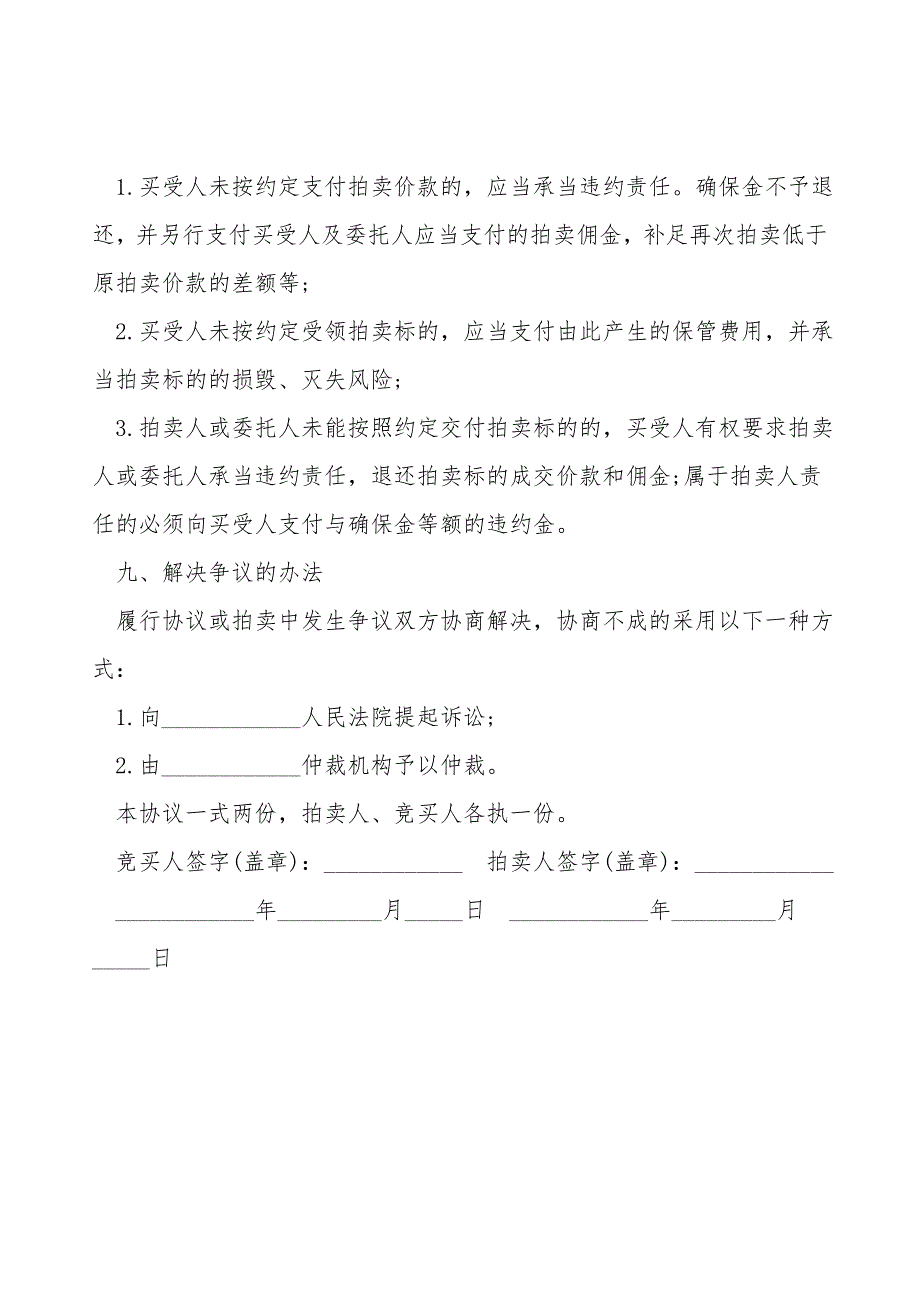 1.买受人未按约定支付拍卖价款的，应当承当违约责任。确保金不予退
还，并另行支付买受人及委托人应当支付的拍卖佣金，补足再次拍卖低于
原拍卖价款的差额等;
2.买受人未按约定受领拍卖标的，应当支付由此产生的保管费用，并承
当拍卖标的的损毁、灭失风险;
3.拍卖人或委托人未能按照约定交付拍卖标的的，买受人有权要求拍卖
人或委托人承当违约责任，退还拍卖标的成交价款和佣金;属于拍卖人责
任的必须向买受人支付与确保金等额的违约金。
九、解决争议的办法
履行协议或拍卖中发生争议双方协商解决，协商不成的采用以下一种方
式：
1.向____________人民法院提起诉讼;
2.由____________仲裁机构予以仲裁。
本协议一式两份，拍卖人、竞买人各执一份。
竞买人签字(盖章)：____________ 拍卖人签字(盖章)：____________
____________年_________月_____日 ____________年_________月
_____日